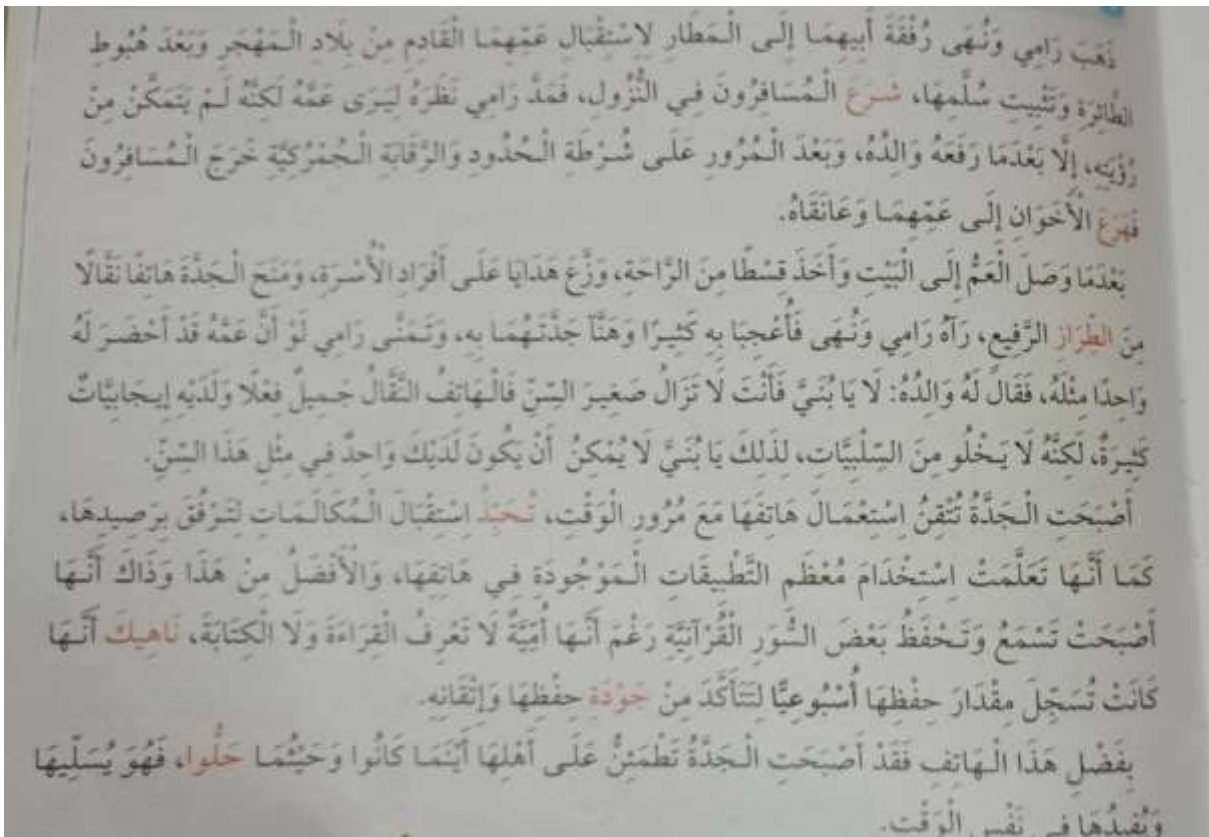 ذَهَبَ رَامِي وَنُهَى رُفْقَةَ أَبِيهِمَا إِلَى الْمَطَارِ لِاسْتِقْبَالِ عَمِّهِمَا الْقَادِمِ مِنْ بِلَادِ الْمَهْجَرِ وَبَعْدَ هُبُوطِ
الطَّائِرَةِ وَتَثْبِيتِ سُلَّمِهَا، شَرَعَ الْمُسَافِرُونَ فِي النُّزُولِ، فَمَدَّ رَامِي نَظَرَهُ لِيَرَى عَمَّهُ لَكِنَّهُ لَمْ يَتَمَكَّنْ مِنْ
رُؤْيَتِهِ، إِلَّا بَعْدَمَا رَفَعَهُ وَالِدُهُ، وَبَعْدَ الْمُرُورِ عَلَى شُرْطَةِ الْحُدُودِ وَالرَّقَابَةِ الْجُمْرُكِيَّةِ خَرَجَ الْمُسَافِرُونَ
فَهَرَعَ الْأَخَوَانِ إِلَى عَمِّهِمَا وَعَانَقَاهُ.
بَعْدَمَا وَصَلَ الْعَمُّ إِلَى الْبَيْتِ وَأَخَذَ قِسْطًا مِنَ الرَّاحَةِ، وَزَّعَ هَدَايَا عَلَى أَفْرَادِ الْأُسْرَةِ، وَمَنَحَ الْجَدَّةَ هَاتِفًا نَقَّالًا
مِنَ الطِّرَازِ الرَّفِيعِ، رَآهُ رَامِي وَنُهَى فَأُعْجِبَا بِهِ كَثِيرًا وَهَنَّآ جَدَّتَهُمَا بِهِ، وَتَمَنَّى رَامِي لَوْ أَنَّ عَمَّهُ قَدْ أَحْضَرَ لَهُ
وَاحِدًا مِثْلَهُ، فَقَالَ لَهُ وَالِدُهُ: لَا يَا بُنَيَّ فَأَنْتَ لَا تَزَالُ صَغِيرَ السِّنِّ فَالْهَاتِفُ النَّقَّالُ جَمِيلٌ فِعْلًا وَلَدَيْهِ إِيجَابِيَّاتٌ
كَثِيرَةٌ، لَكِنَّهُ لَا يَخْلُو مِنَ السِّلْبِيَّاتِ، لِذَلِكَ يَا بُنَيَّ لَا يُمْكِنُ أَنْ يَكُونَ لَدَيْكَ وَاحِدٌ فِي مِثْلِ هَذَا السِّنِّ.
أَصْبَحَتِ الْجَدَّةُ تُتْقِنُ اِسْتِعْمَالَ هَاتِفَهَا مَعَ مُرُورِ الْوَقْتِ، تُحَبِّذُ اِسْتِقْبَالَ الْمُكَالَمَاتِ لِتَرْفُقَ بِرَصِيدِهَا،
كَمَا أَنَّهَا تَعَلَّمَتْ اِسْتِخْدَامَ مُعْظَمِ التَّطْبِيقَاتِ الْمَوْجُودَةِ فِي هَاتِفِهَا، وَالْأَفْضَلُ مِنْ هَذَا وَذَاكَ أَنَّهَا
أَصْبَحَتْ تَسْمَعُ وَتَحْفَظُ بَعْضَ السُّوَرِ الْقُرْآنِيَّةِ رَغْمَ أَنَّهَا أُمِّيَّةٌ لَا تَعْرِفُ الْقِرَاءَةَ وَلَا الْكِتَابَةَ، نَاهِيكَ أَنَّهَا
كَانَتْ تُسَجِّلُ مِقْدَارَ حِفْظِهَا أُسْبُوعِيًّا لِتَتَأَكَّدَ مِنْ جَوْدَةِ حِفْظِهَا وَإِتْقَانِهِ.
بِفَضْلِ هَذَا الْهَاتِفِ فَقَدْ أَصْبَحَتِ الْجَدَّةُ تَطْمَئِنُّ عَلَى أَهْلِهَا أَيْنَمَا كَانُوا وَحَيْثُمَا حَلُّوا، فَهُوَ يُسَلِّيهَا
وَيُفِيدُهَا فِي نَفْسِ الْوَقْتِ.